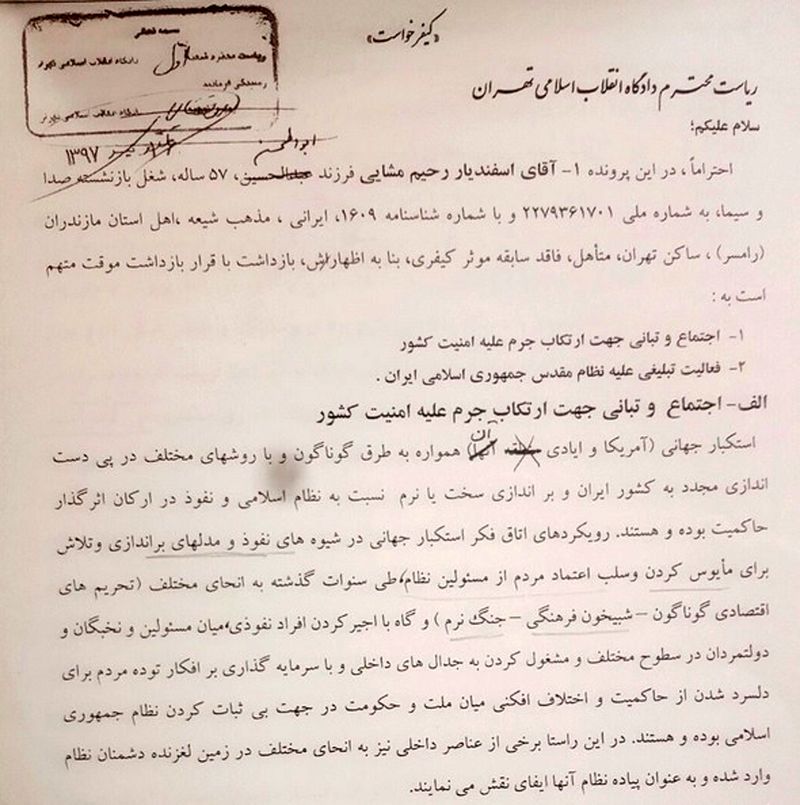 «کیفرخواست»
ریاست محترم شعبه اول دادگاه انقلاب اسلامی تهران
دادگاه انقلاب اسلامی تهران
۱۳۹۷
ریاست محترم دادگاه انقلاب اسلامی تهران
سلام علیکم؛
ابوالحسن
احتراماً ، در این پرونده ۱- آقای اسفندیار رحیم مشایی فرزند عبدالحسین، ۵۷ ساله، شغل بازنشسته صدا
و سیما، به شماره ملی ۲۲۷۹۳۶۱۷۰۱ و با شماره شناسنامه ۱۶۰۹، ایرانی ، مذهب شیعه ،اهل استان مازندران
(رامسر) ، ساکن تهران، متأهل، فاقد سابقه موثر کیفری، بنا به اظهاراش، بازداشت با قرار بازداشت موقت متهم
است به :
۱- اجتماع و تبانی جهت ارتکاب جرم علیه امنیت کشور
۲- فعالیت تبلیغی علیه نظام مقدس جمهوری اسلامی ایران .
الف- اجتماع و تبانی جهت ارتکاب جرم علیه امنیت کشور
استکبار جهانی (آمریکا و ایادی آن آنها) همواره به طرق گوناگون و با روشهای مختلف در پی دست
اندازی مجدد به کشور ایران و بر اندازی سخت یا نرم نسبت به نظام اسلامی و نفوذ در ارکان اثرگذار
حاکمیت بوده و هستند. رویکردهای اتاق فکر استکبار جهانی در شیوه های نفوذ و مدلهای براندازی وتلاش
برای مأیوس کردن وسلب اعتماد مردم از مسئولین نظام، طی سنوات گذشته به انحای مختلف (تحریم های
اقتصادی گوناگون – شبیخون فرهنگی – جنگ نرم ) و گاه با اجیر کردن افراد نفوذی، میان مسئولین و نخبگان و
دولتمردان در سطوح مختلف و مشغول کردن به جدال های داخلی و با سرمایه گذاری بر افکار توده مردم برای
دلسرد شدن از حاکمیت و اختلاف افکنی میان ملت و حکومت در جهت بی ثبات کردن نظام جمهوری
اسلامی بوده و هستند. در این راستا برخی از عناصر داخلی نیز به انحای مختلف در زمین لغزنده دشمنان نظام
وارد شده و به عنوان پیاده نظام آنها ایفای نقش می نمایند.